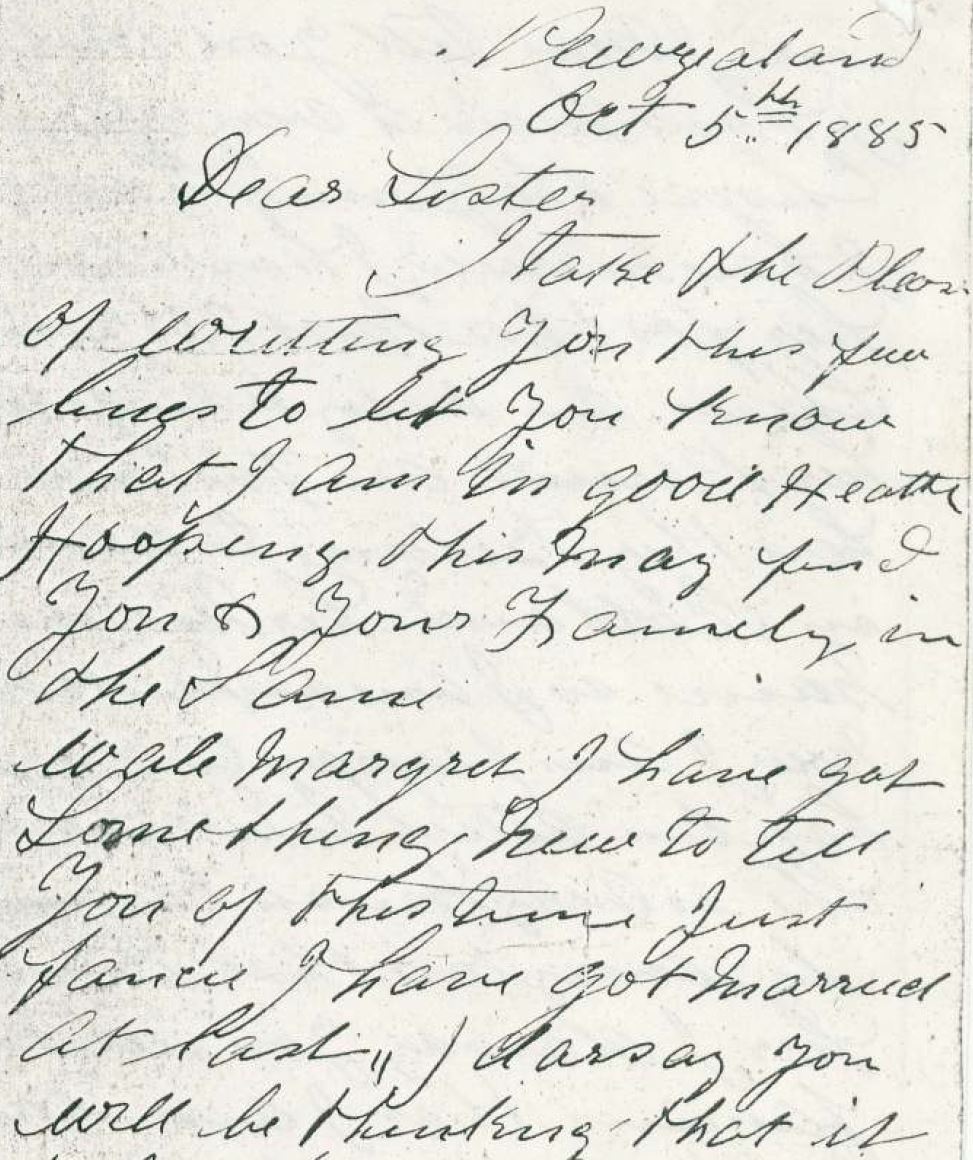 Newzealand
Oct 5th 1885
Dear Sister
I take the Pleas
of writting You this few
lines to let You Know
that I am in good Heath
Hooping this may find
You & Your Family in
the Same
Wale Margret I have got
Something New to tell
You of this time Just
fancie I have got Married
At Last ,, I darsay You
will be thinking that it